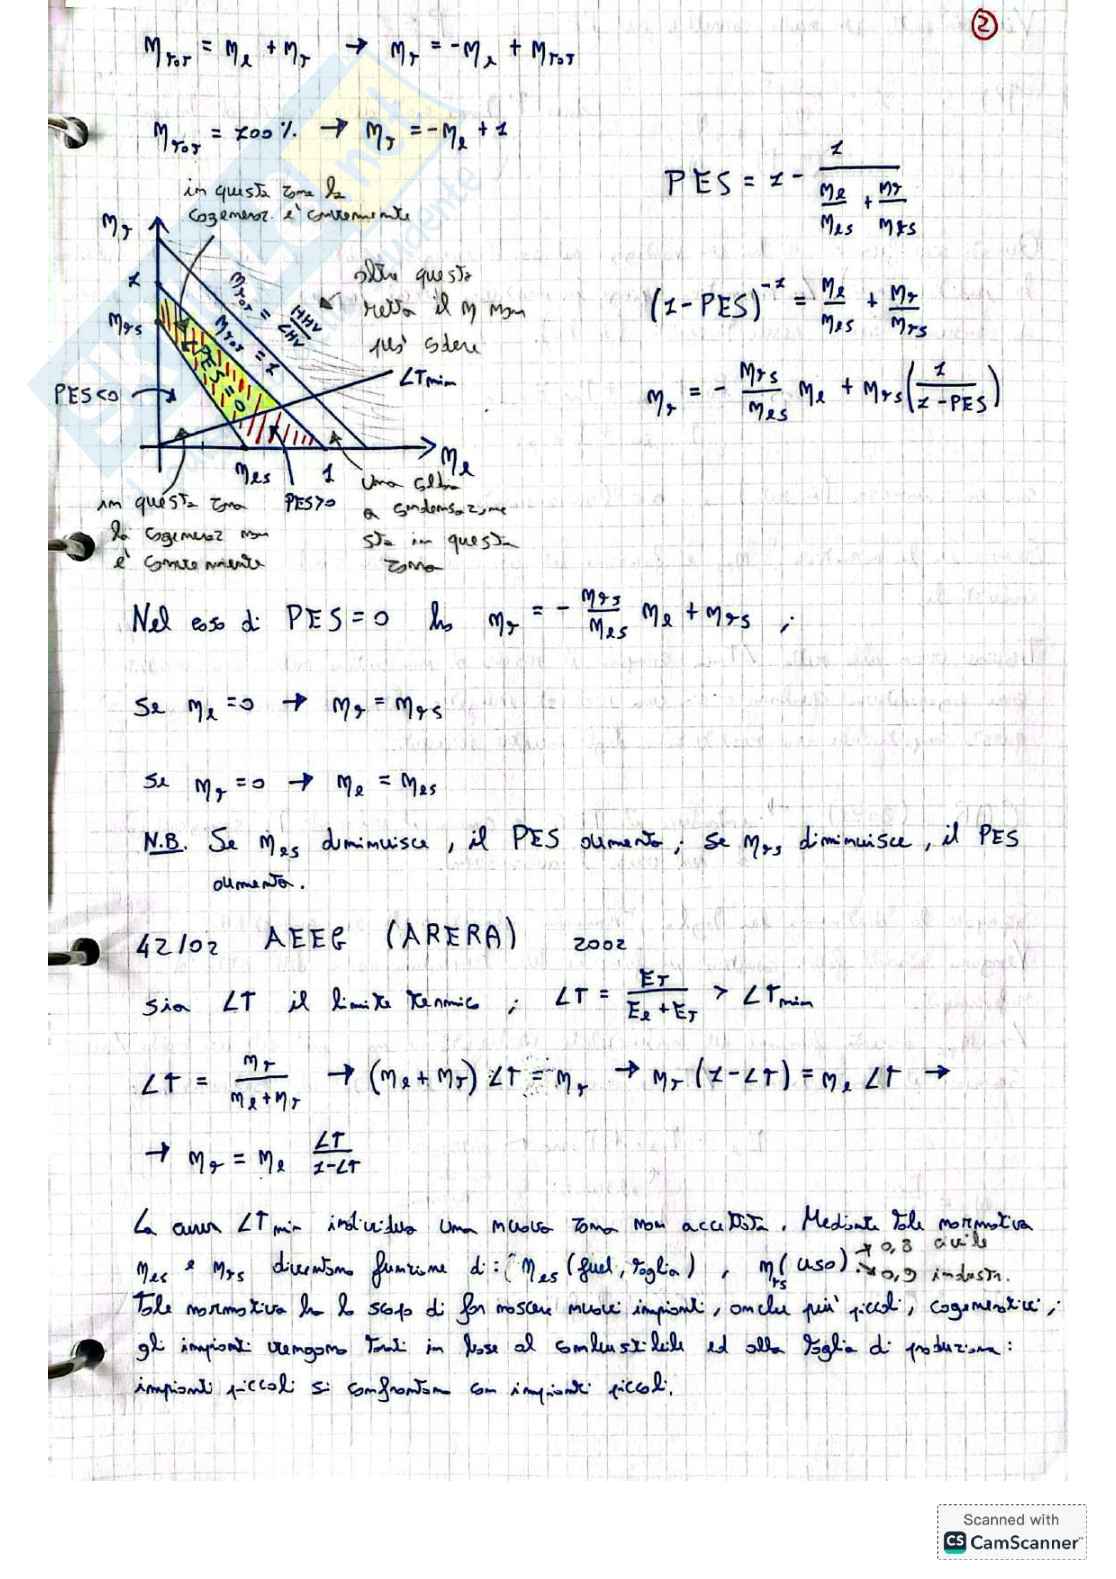 2
η_TOT = η_e + η_T → η_T = -η_e + η_TOT
η_TOT = 100% → η_T = -η_e + 1
in questa zona la
cogeneraz. e' conveniente
η_T
1
η_TS
η_TOT = HHV/LHV
η_TOT = 1
PES=0
PES<0
oltre questa
retta il η non
può cadere
LT min
η_e
η_es
1
PES>0
in questa zona
la cogeneraz non
e' conveniente
una
a condensazione
sta in questa
zona
PES = 1 - 1/(η_e/η_es + η_T/η_TS)
(1-PES)^-1 = η_e/η_es + η_T/η_TS
η_T = - η_TS/η_es η_e + η_TS (1/(1-PES))
Nel caso di PES=0 ho η_T = - η_TS/η_es η_e + η_TS ;
Se η_e=0 → η_T = η_TS
Se η_T=0 → η_e = η_es
N.B. Se η_es diminuisce, il PES aumenta; se η_TS diminuisce, il PES
aumenta.
42/02 AEEG (ARERA) 2002
sia LT il limite termico ; LT = E_T/(E_e+E_T) > LT min
LT = η_T/(η_e+η_T) → (η_e+η_T) LT = η_T → η_T (1-LT) = η_e LT →
→ η_T = η_e LT/(1-LT)
La curva LT min individua una nuova zona non accettata. Mediante tale normativa
η_es e η_TS diventano funzione di: η_es (fuel, taglia) , η_TS (uso) → 0,8 civile
→ 0,9 industr.
Tale normativa ha lo scopo di far nascere nuovi impianti, anche più piccoli, cogenerativi;
gli impianti vengono in base al combustibile ed alla taglia di produzione:
impianti piccoli si confrontano con impianti piccoli.
Scanned with
CS CamScanner